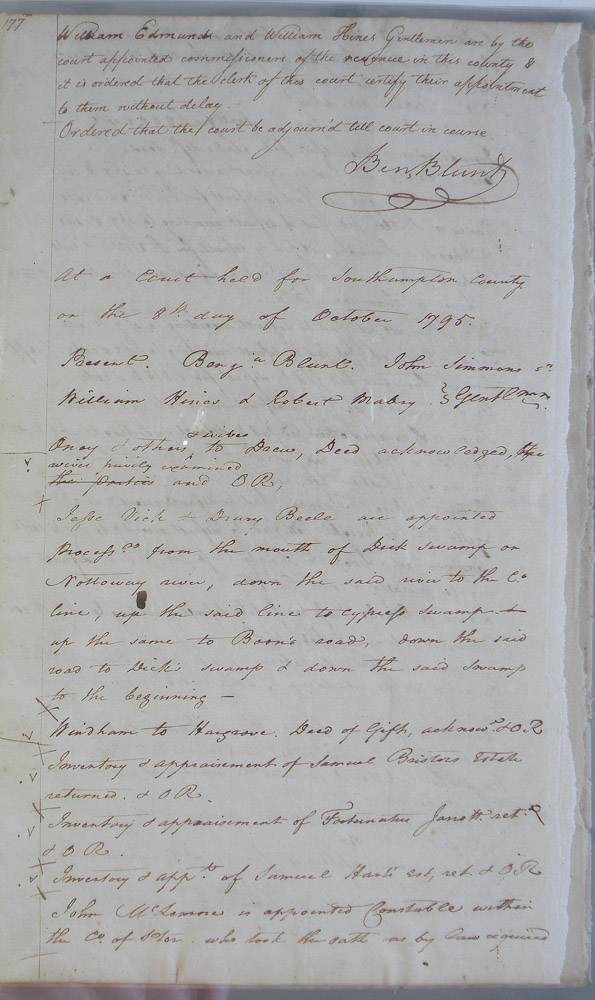 177
William Edmunds and William Hines Gentlemen are by the
court appointed commissioners of the revenue in this county &
it is ordered that the clerk of this court certify their appointment
to them without delay.
Ordered that the court be adjourn'd till court in course.
Ben: Blunt
At a Court held for Southampton County
on the 8th day of October 1795.
Present. Benja Blunt. John Simmons
William Hines & Robert Mabry } Gentlmn
& wives
Onay & others, to Drew, Deed acknowledged, the
wives privily examined
the parties and OR,
Jesse Vick & Drury Beele are appointed
Processrs from the mouth of Dick Swamp on
Nottoway river, down the said river to the Co
line, up the said line to Cypress Swamp &
up the same to Boon's road, down the said
road to Dick's swamp & down the said Swamp
to the beginning —
Windham to Hargrove. Deed of Gift, acknowd & OR
Inventory & appraisement of Samuel Bristors Estate
returned. & OR.
Inventory & appraisement of Fortunatus Jarrott. ret.
& OR.
Inventory & appt of Samuel Hart's est, ret. & OR
John McLemore is appointed Constable within
the Co. of who took the oath as by law required